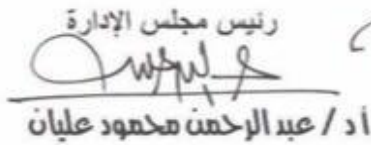 رئيس مجلس الإدارة
أ د / عبد الرحمن محمود عليان